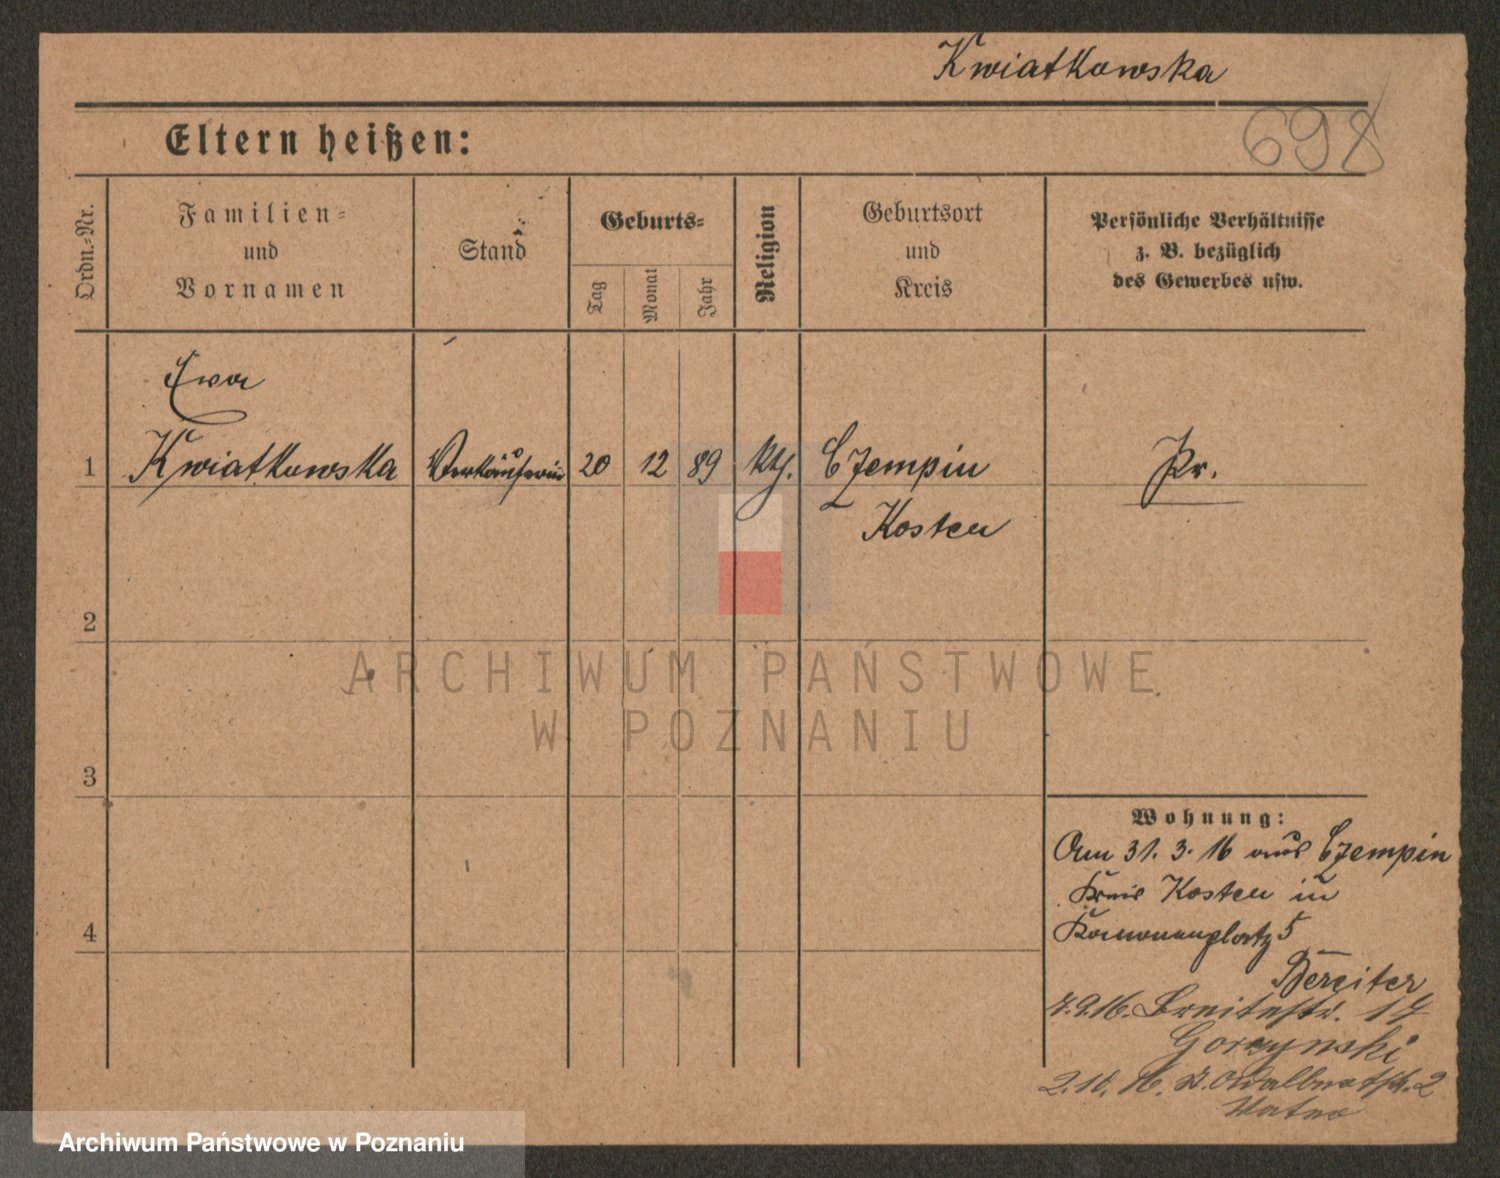 Kwiatkowska
698
Eltern heißen:
Ordn.-Nr.
Familien-
und
Vornamen
Stand
Geburts-
Tag
Monat
Jahr
Religion
Geburtsort
und
Kreis
Persönliche Verhältnisse
z. B. bezüglich
des Gewerbes usw.
Ewa
1 Kwiatkowska Verkäuferin 20 12 89 kth. Czempin Pr.
Kosten
2
3
4
ARCHIWUM PAŃSTWOWE
W POZNANIU
Wohnung:
Am 31. 3. 16 aus Czempin
Kreis Kosten in
5
Bereiter
7.9.16. Breitestr. 17
Gorzynski
2.10.16.
Archiwum Państwowe w Poznaniu